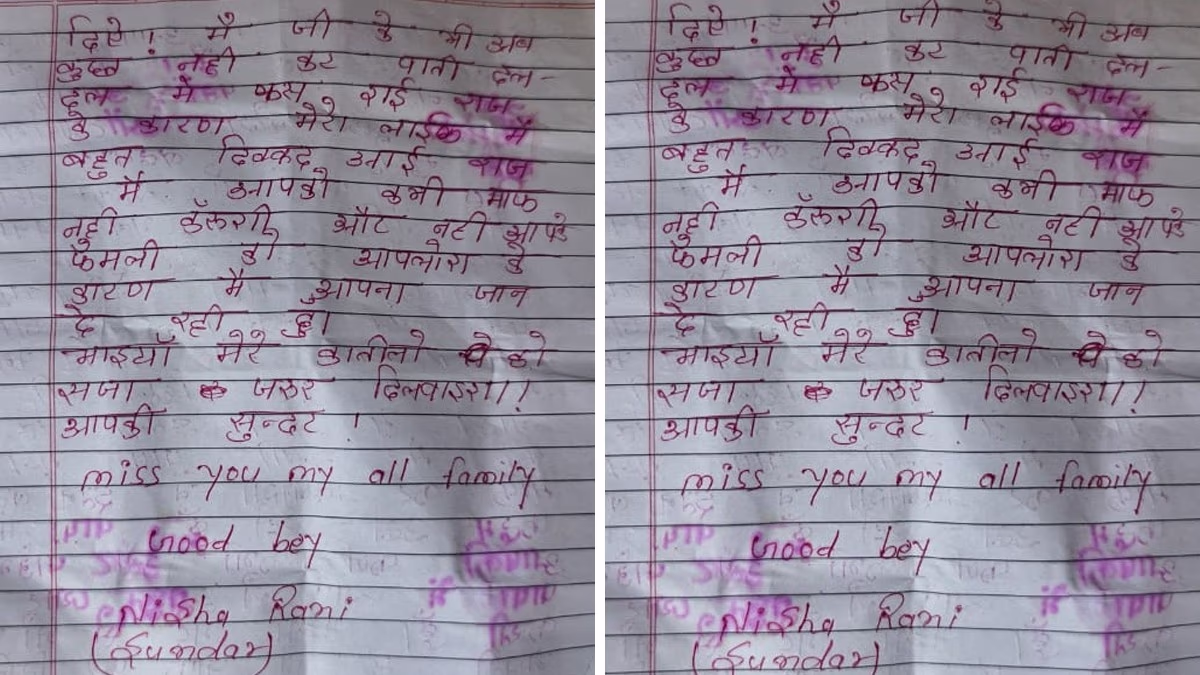 दिऐ! मै जी के भी अब
कुछ नही कर पाती दल-
दल मे फस गई राज
के कारण मेरा लाईफ मे
बहुत दिक्कद आई राज
मै आपको कभी माफ
नही करूगी और नही आपके
फैमली को आपलोग के
कारण मै आपना जान
दे रही हु।
भाइयाँ मेरे कातीलो को
सजा जरूर दिलवाइगा!
आपकी सुन्दर !
miss you my all family
Good bey
Nisha Rani
(Sundar)
दिऐ! मै जी के भी अब
कुछ नही कर पाती दल-
दल मे फस गई राज
के कारण मेरा लाईफ मे
बहुत दिक्कद आई राज
मै आपको कभी माफ
नही करूगी और नही आपके
फैमली को आपलोग के
कारण मै आपना जान
दे रही हु।
भाइयाँ मेरे कातीलो को
सजा जरूर दिलवाइगा!
आपकी सुन्दर !
miss you my all family
Good bey
Nisha Rani
(Sundar)